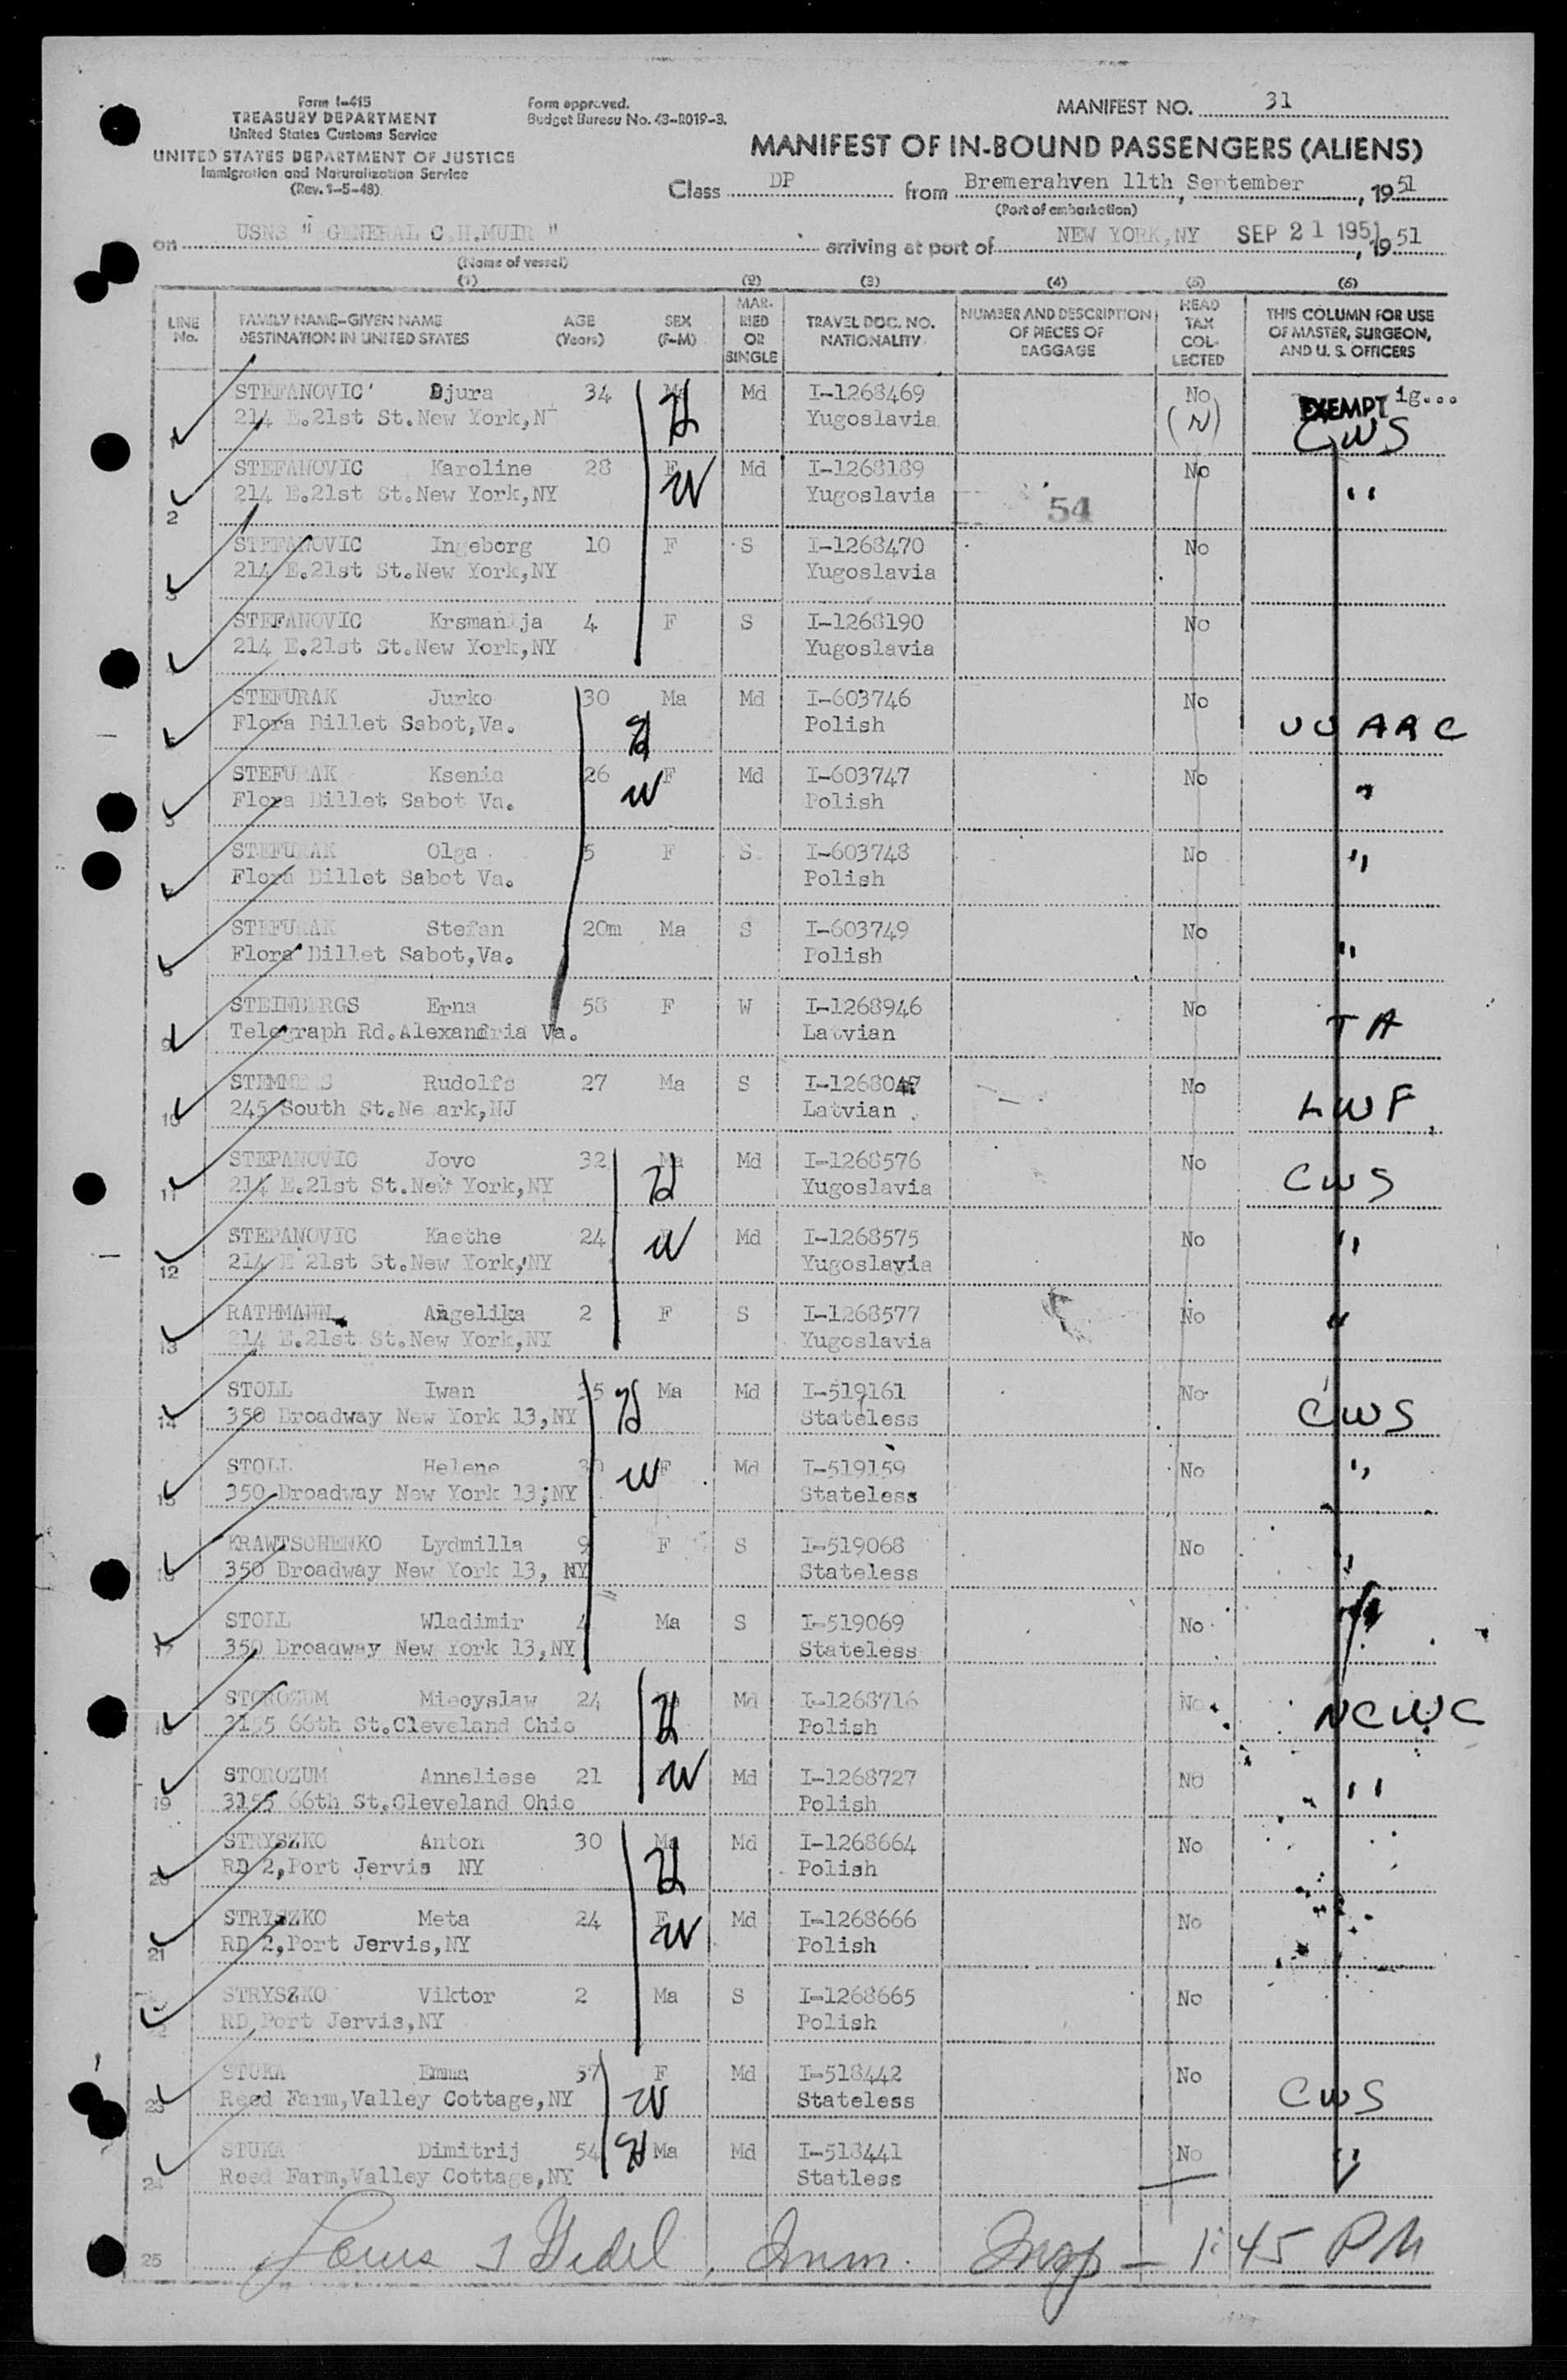 Form I-415
TREASURY DEPARTMENT
United States Customs Service
UNITED STATES DEPARTMENT OF JUSTICE
Immigration and Naturalization Service
(Rev. 1-5-48)
Form approved.
Budget Bureau No. 43-R019-3.
MANIFEST NO. 31
MANIFEST OF IN-BOUND PASSENGERS (ALIENS)
Class DP from Bremerahven 11th, September, 1951
(Port of embarkation)
on USNS " GENERAL C.H.MUIR " arriving at port of NEW YORK,NY SEP 21 1951, 1951
(Name of vessel)
(1) (2) (3) (4) (5) (6)
LINE No. FAMILY NAME-GIVEN NAME DESTINATION IN UNITED STATES AGE (Years) SEX (F-M) MARRIED OR SINGLE TRAVEL DOC. NO. NATIONALITY NUMBER AND DESCRIPTION OF PIECES OF BAGGAGE HEAD TAX COLLECTED THIS COLUMN FOR USE OF MASTER, SURGEON, AND U. S. OFFICERS
STEFANOVIC' Djura 34 Ma Md I-1268469 No EXEMPT ig...
1 214 E.21st St.New York,N H Yugoslavia (N) CWS
STEFANOVIC Karoline 28 F Md I-1268189 No
2 214 E.21st St.New York,NY W Yugoslavia 54 "
STEFANOVIC Ingeborg 10 F S I-1268470 No
3 214 E.21st St.New York,NY Yugoslavia
STEFANOVIC Krsman ja 4 F S I-1268190 No
214 E.21st St.New York,NY Yugoslavia
STEFURAK Jurko 30 Ma Md I-603746 No
Flora Billet Sabot,Va. H Polish UUARC
STEFURAK Ksenia 26 F Md I-603747 No
Flora Billet Sabot Va. W Polish "
STEFURAK Olga 5 F S I-603748 No "
Flora Billet Sabot Va. Polish
STEFURAK Stefan 20m Ma S I-603749 No
Flora Billet Sabot,Va. Polish "
STEINBERGS Erna 58 F W I-1268946 No
9 Telegraph Rd.Alexandria Va. Latvian TA
STEMMERS Rudolfs 27 Ma S I-126804 No
10 245 South St.Ne ark,NJ Latvian LWF
STEPANOVIC Jovo 32 Ma Md I-1268576 No
11 214 E.21st St.New York,NY H Yugoslavia CWS
STEPANOVIC Kaethe 24 Md I-1268575 No
12 214 E 21st St.New York,NY W Yugoslavia "
RATHMANN Angelika 2 F S I-1268577 No
13 214 E.21st St.New York,NY Yugoslavia "
STOLL Iwan 35 Ma Md I-519161 No
14 350 Broadway New York 13,NY H Stateless CWS
STOLL Helene 30 F Md I-519159 No
15 350 Broadway New York 13;NY W Stateless "
KRAWTSCHENKO Lydmilla 9 F S I-519068 No
16 350 Broadway New York 13, NY Stateless "
STOLL Wladimir 4 Ma S I-519069 No
17 350 Broadway New York 13,NY Stateless "
STOROZUM Miecyslaw 24 Md I-1268716 No
18 3155 66th St.Cleveland Ohio H Polish NCWC
STOROZUM Anneliese 21 Md I-1268727 No
19 3155 66th St.Cleveland Ohio W Polish "
STRYSZKO Anton 30 Ma Md I-1268664 No
20 RD 2,Port Jervis NY H Polish
STRYSZKO Meta 24 F Md I-1268666 No
21 RD 2,Port Jervis,NY W Polish
STRYSZKO Viktor 2 Ma S I-1268665 No
RD Port Jervis,NY Polish
STUKA Emma 57 F Md I-518442 No
23 Reed Farm,Valley Cottage,NY W Stateless CWS
STUKA Dimitrij 54 H Ma Md I-518441 No
24 Reed Farm,Valley Cottage,NY Statless "
25 Louis Imm. Insp - 1:45 PM